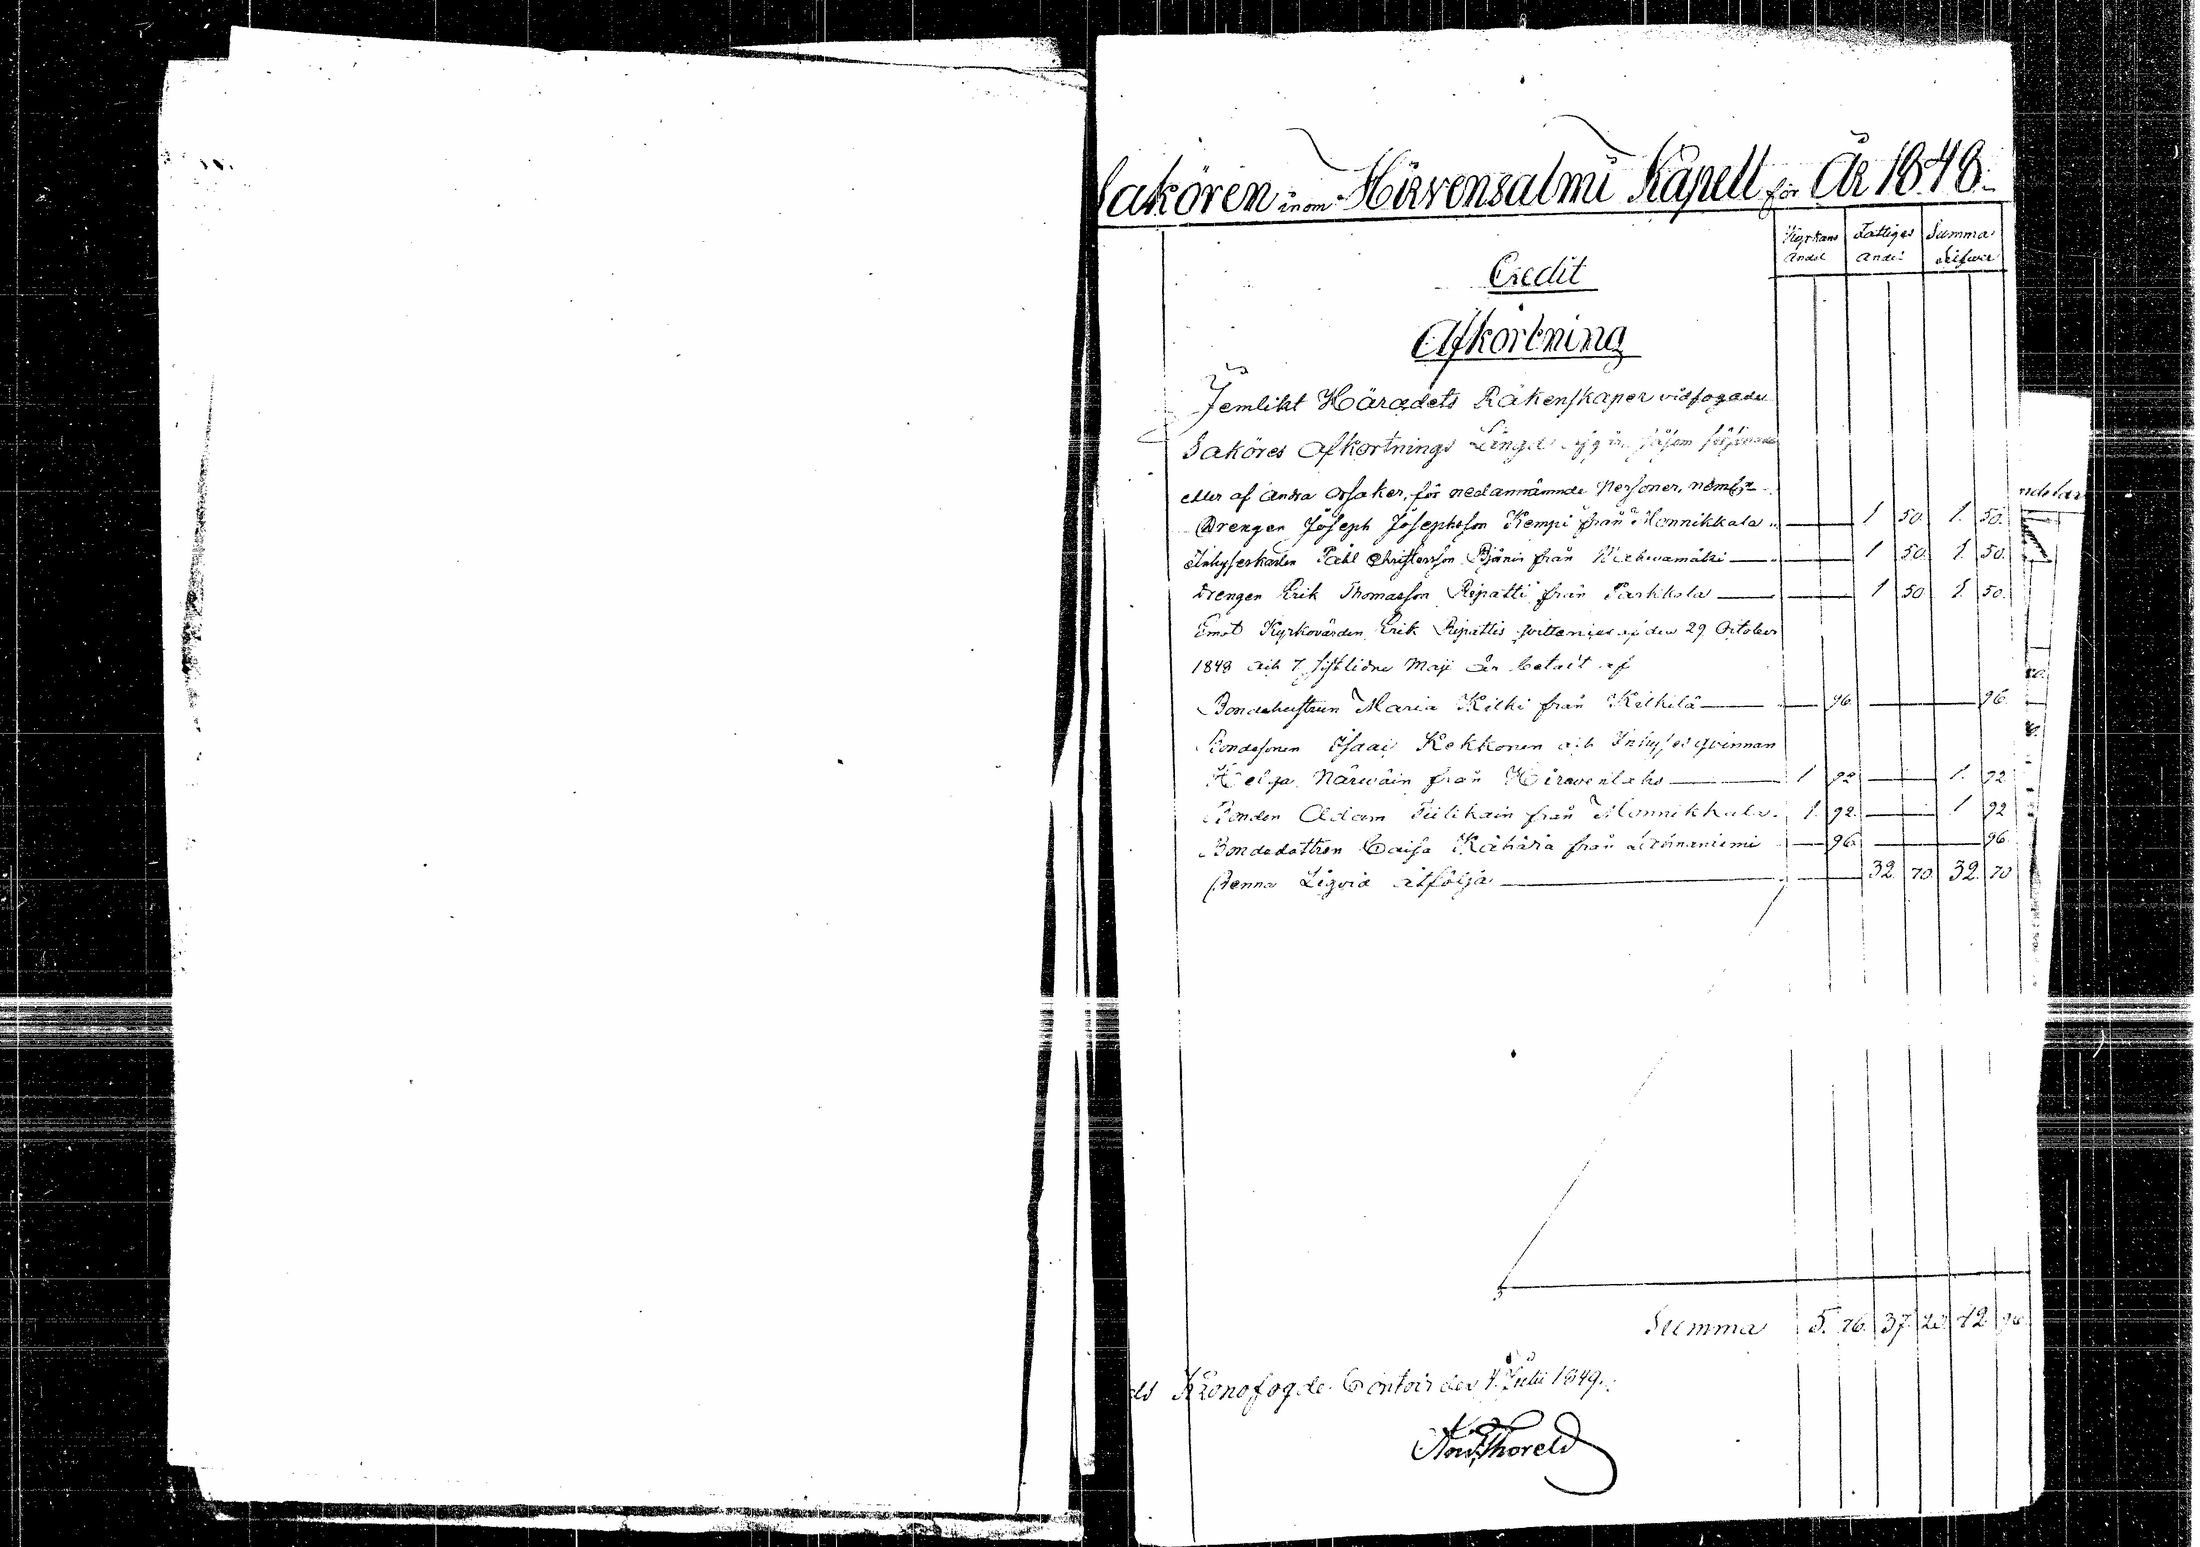 Sakören inom Hirvensalmi Kapell för År 1848.
Kyrkans Andel Fattiges Andel Summa Silfver
Credit
Afkortning
Jemlikt Häradets Räkenskaper vidfogade
Saköres Afkortnings Längd
eller af andra orsaker, för nedannämnde Personer, neml
Drengen Joseph Josephsson Kempi från Monnikkala 1 50. 1. 50.
Inhyseskarlen Påhl Christersson från 1 50. 1. 50.
Drengen Erik Thomasson Ripatti från Parkkola 1 50 1. 50.
Emot Kyrkovärden Erik Ripattis qvittenser af den 29 October
1848 och 7 sistlidne Maji är betalt af
Bondehustrun Maria Kilki från Kilkilä 96. 96.
Bondesonen Isaac Kekkonen och Inhyses qvinnan
Helga Närväin från Hirvenlaks 1 92 1. 92
Bonden Adam Tiilikain från Monnikkala 1. 92. 1 92
Bondedottren Caisa Kähärä från 96. 96
Denna Liqvid åtfölja 32. 70 32. 70
Summa 5. 76. 37 20 42 96
ds Kronofogde Contoir den 4 Julii 1849.